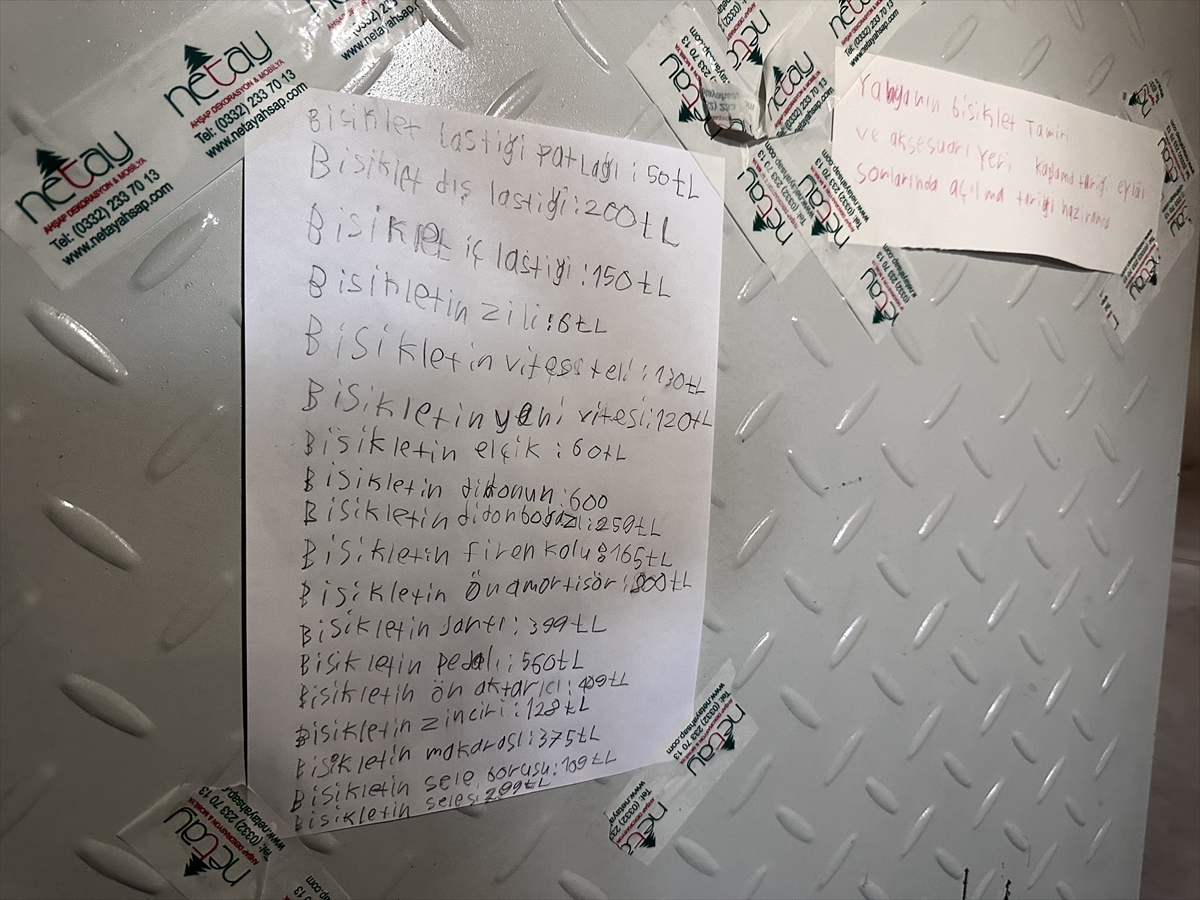 netay
AHŞAP DEKORASYON & MOBİLYA
Tel: (0332) 233 70 13
www.netayahsap.com
netay
AHŞAP DEKORASYON & MOBİLYA
Tel: (0332) 233 70 13
www.netayahsap.com
Bisiklet lastiği patlağı : 50tL
Bisiklet dış lastiği : 200tL
Bisiklet iç lastiği : 150tL
Bisikletin zili : 6tL
Bisikletin vites teli : 130tL
Bisikletin yeni vitesi : 120tL
Bisikletin elçik : 60tL
Bisikletin didonun : 600
Bisikletin didonboğazı : 259tL
Bisikletin firen kolu : 165tL
Bisikletin önamortisör : 800tL
Bisikletin Jantı : 399tL
Bisikletin pedalı : 560tL
Bisikletin ön aktarıcı : 409tL
Bisikletin zinciri : 128tL
Bisikletin makarası : 375tL
Bisikletin sele borusu : 109tL
Bisikletin selesi 299tL
Yahyanın bisiklet Tamiri
ve aksesuarı yeri kapama tariği eylül
sonlarında açılma tariği haziranda
netay
Tel: (0332) 233 70 13
www.netayahsap.com
netay
(0332) 233 70 13
www.netayahsap.com
netay